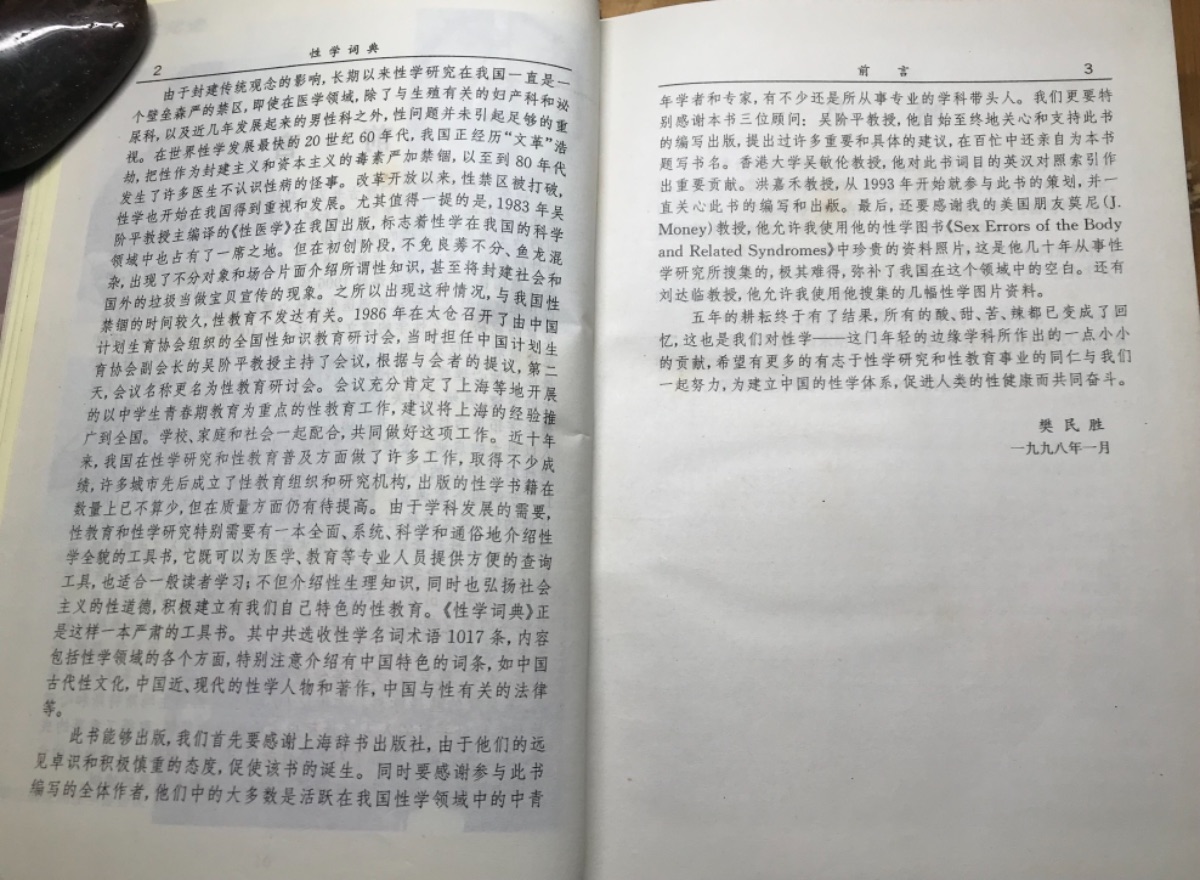 2
性学词典
由于封建传统观念的影响,长期以来性学研究在我国一直是一
个壁垒森严的禁区,即使在医学领域,除了与生殖有关的妇产科和泌
尿科,以及近几年发展起来的男性科之外,性问题并未引起足够的重
视。在世界性学发展最快的20世纪60年代,我国正经历“文革”浩
劫,把性作为封建主义和资本主义的毒素严加禁锢,以至到80年代
发生了许多医生不认识性病的怪事。改革开放以来,性禁区被打破,
性学也开始在我国得到重视和发展。尤其值得一提的是,1983年吴
阶平教授主编译的《性医学》在我国出版,标志着性学在我国的科学
领域中也占有了一席之地。但在初创阶段,不免良莠不分、鱼龙混
杂,出现了不分对象和场合片面介绍所谓性知识,甚至将封建社会和
国外的垃圾当做宝贝宣传的现象。之所以出现这种情况,与我国性
禁锢的时间较久,性教育不发达有关。1986年在太仓召开了由中国
计划生育协会组织的全国性知识教育研讨会,当时担任中国计划生
育协会副会长的吴阶平教授主持了会议,根据与会者的提议,第二
天,会议名称更名为性教育研讨会。会议充分肯定了上海等地开展
的以中学生青春期教育为重点的性教育工作,建议将上海的经验推
广到全国。学校、家庭和社会一起配合,共同做好这项工作。近十年
来,我国在性学研究和性教育普及方面做了许多工作,取得不少成
绩,许多城市先后成立了性教育组织和研究机构,出版的性学书籍在
数量上已不算少,但在质量方面仍有待提高。由于学科发展的需要,
性教育和性学研究特别需要有一本全面、系统、科学和通俗地介绍性
学全貌的工具书,它既可以为医学、教育等专业人员提供方便的查询
工具,也适合一般读者学习;不但介绍性生理知识,同时也弘扬社会
主义的性道德,积极建立有我们自己特色的性教育。《性学词典》正
是这样一本严肃的工具书。其中共选收性学名词术语1017条,内容
包括性学领域的各个方面,特别注意介绍有中国特色的词条,如中国
古代性文化,中国近、现代的性学人物和著作,中国与性有关的法律
等。
此书能够出版,我们首先要感谢上海辞书出版社,由于他们的远
见卓识和积极慎重的态度,促使该书的诞生。同时要感谢参与此书
编写的全体作者,他们中的大多数是活跃在我国性学领域中的中青
前言
3
年学者和专家,有不少还是所从事专业的学科带头人。我们更要特
别感谢本书三位顾问:吴阶平教授,他自始至终地关心和支持此书
的编写出版,提出过许多重要和具体的建议,在百忙中还亲自为本书
题写书名。香港大学吴敏伦教授,他对此书词目的英汉对照索引作
出重要贡献。洪嘉禾教授,从1993年开始就参与此书的策划,并一
直关心此书的编写和出版。最后,还要感谢我的美国朋友莫尼(J.
Money)教授,他允许我使用他的性学图书《Sex Errors of the Body
and Related Syndromes》中珍贵的资料照片,这是他几十年从事性
学研究所搜集的,极其难得,弥补了我国在这个领域中的空白。还有
刘达临教授,他允许我使用他搜集的几幅性学图片资料。
五年的耕耘终于有了结果,所有的酸、甜、苦、辣都已变成了回
忆,这也是我们对性学——这门年轻的边缘学科所作出的一点小小
的贡献,希望有更多的有志于性学研究和性教育事业的同仁与我们
一起努力,为建立中国的性学体系,促进人类的性健康而共同奋斗。
樊民胜
一九九八年一月